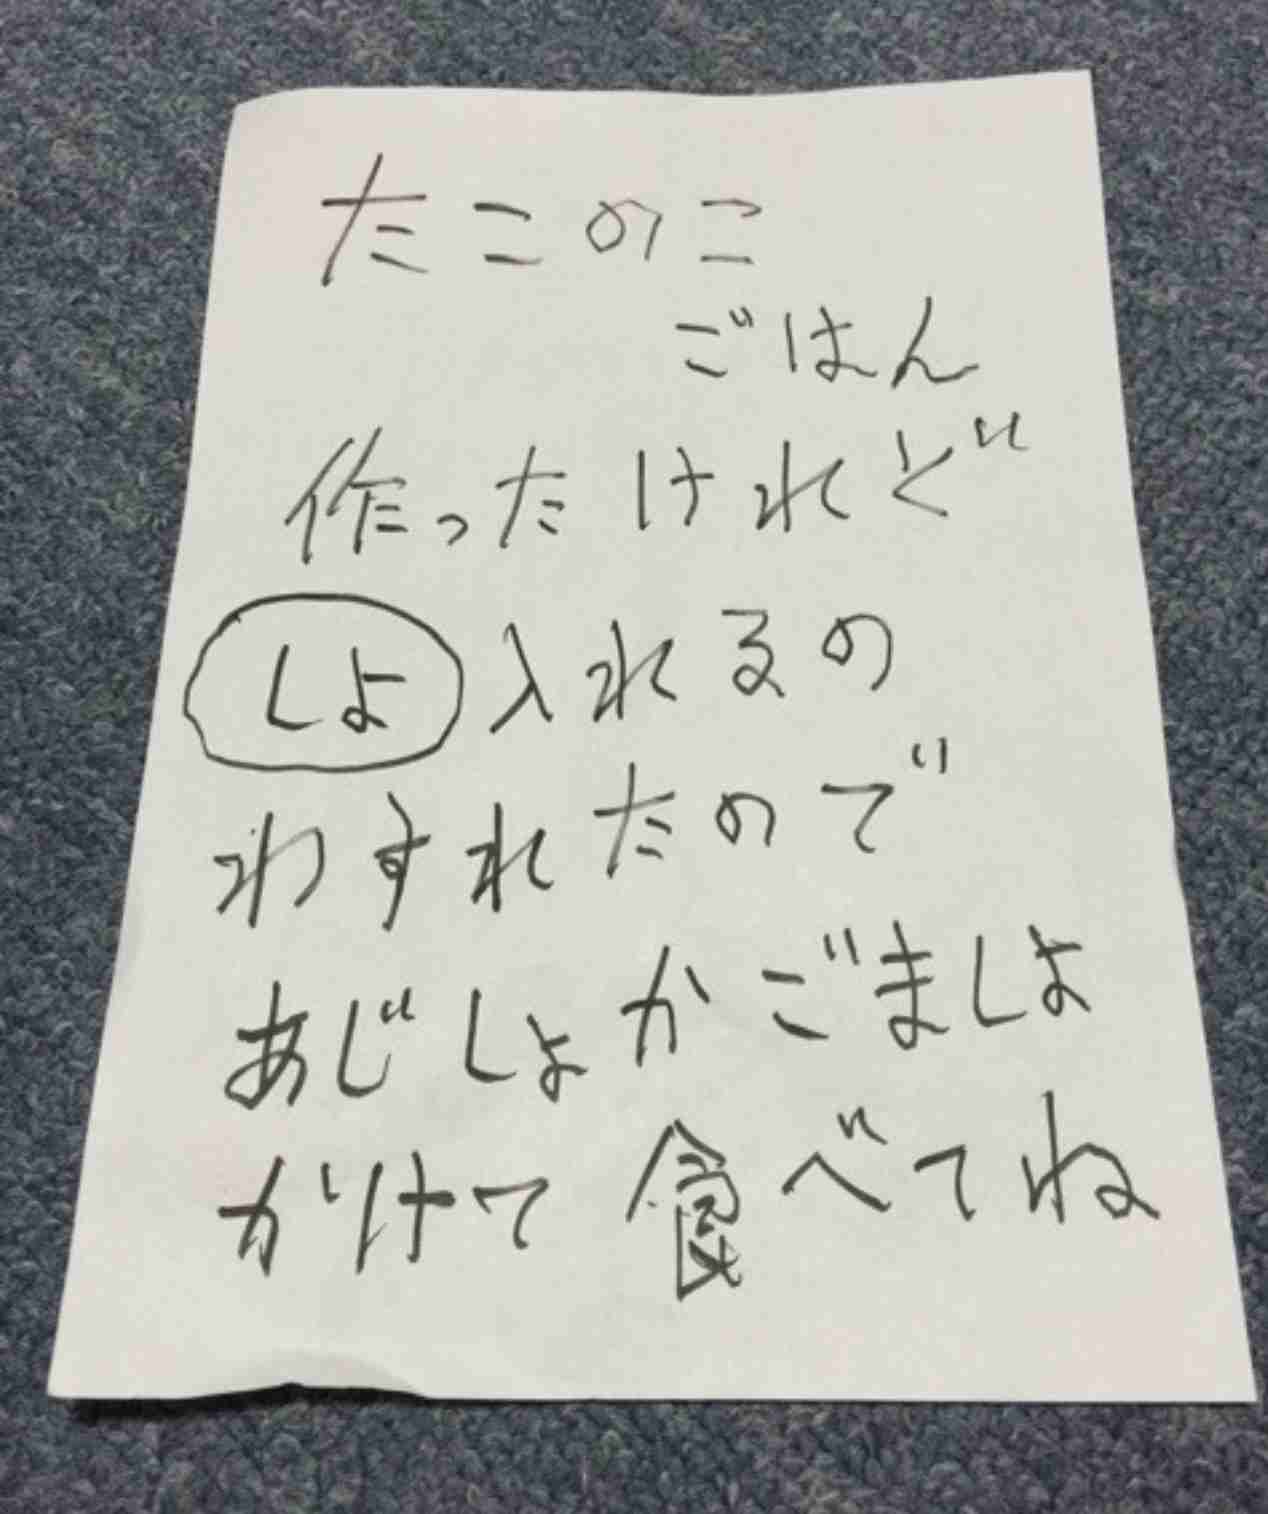 たこのこ
ごはん
作ったけれど
しよ 入れるの
わすれたので
あじしょかごましょ
かけて食べてね